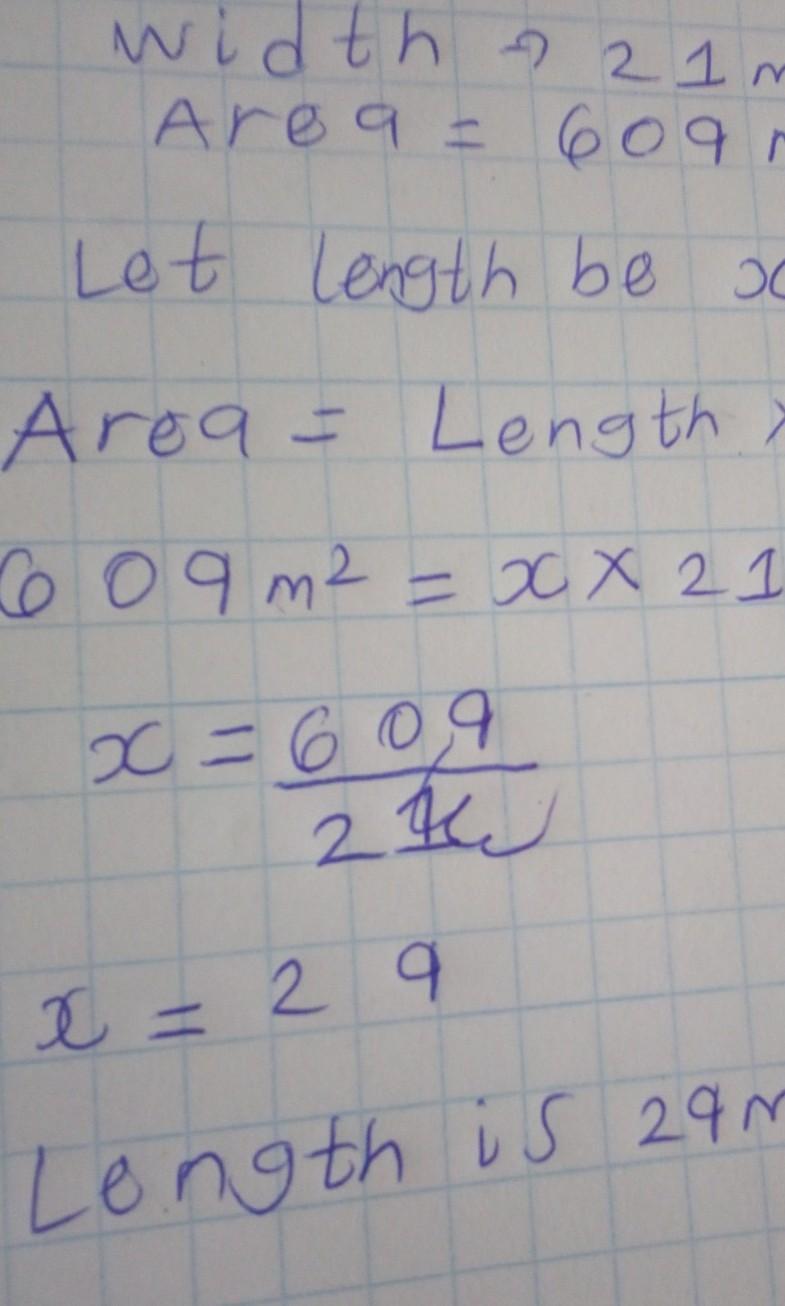 Width → 21 m
Area = 609 m
Let length be x
Area = Length ×
609 m² = x × 21
x = 609
21
x = 29
Length is 29 m